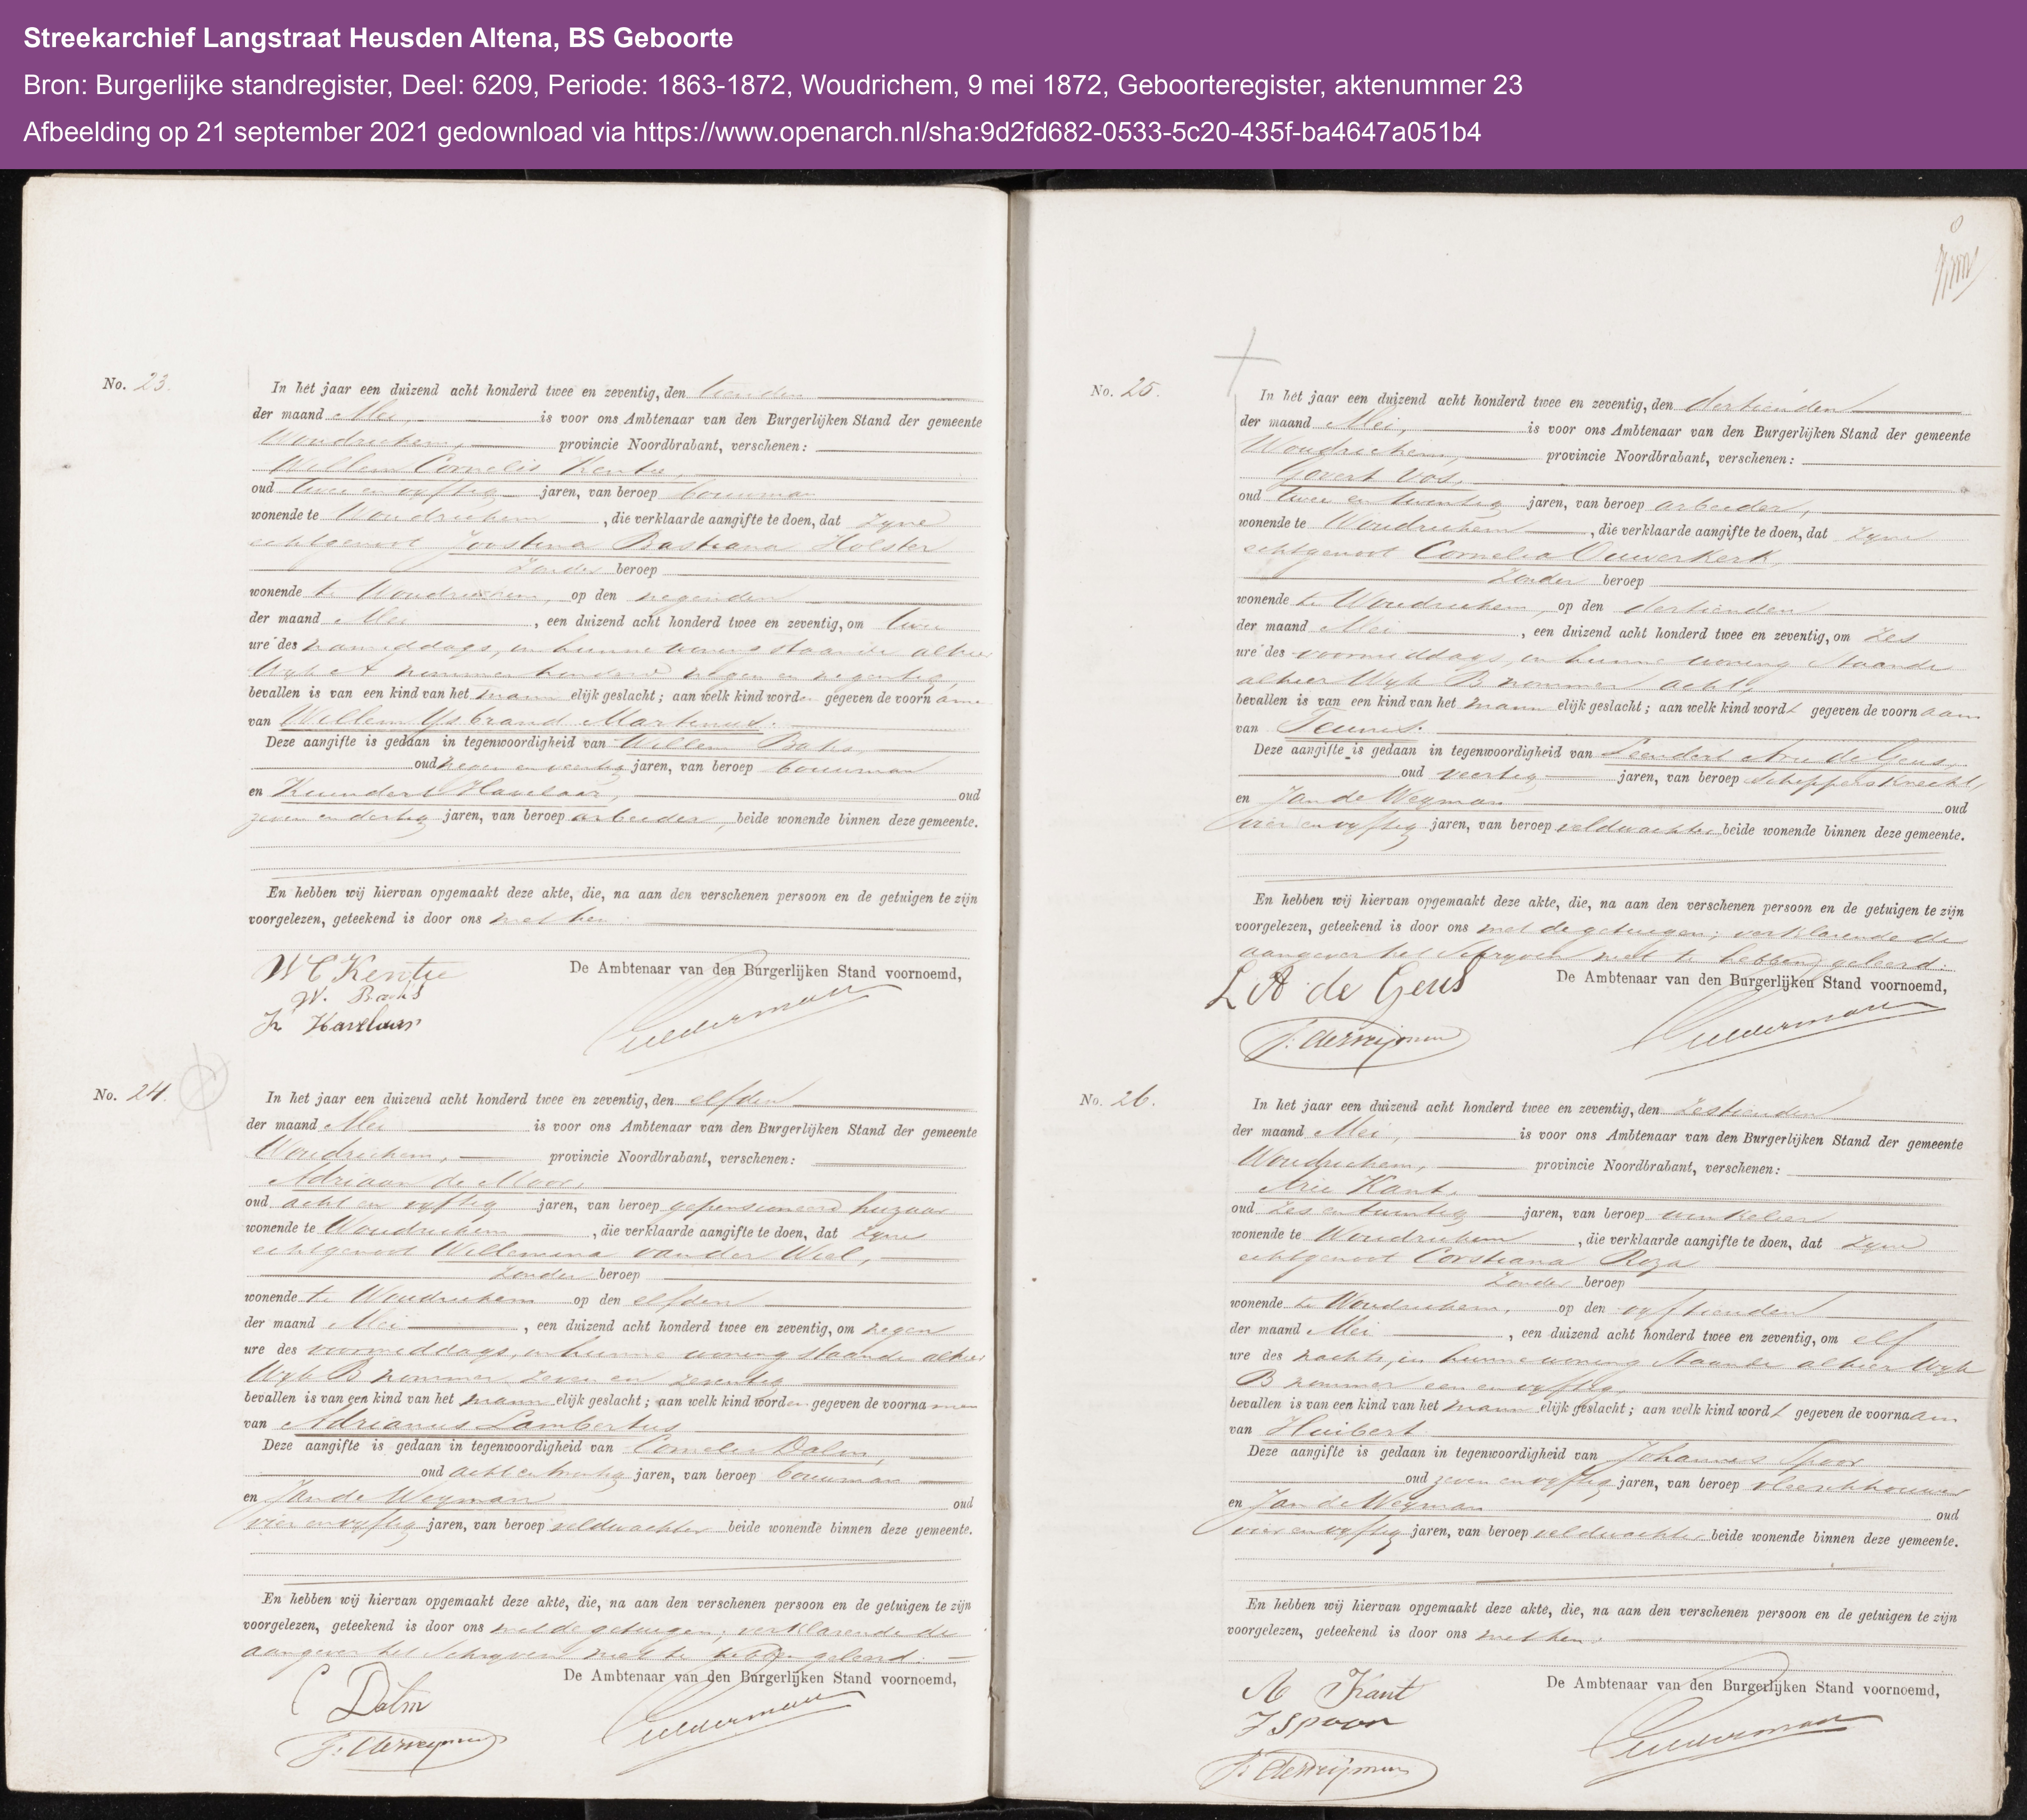 Streekarchief Langstraat Heusden Altena, BS Geboorte
Bron: Burgerlijke standregister, Deel: 6209, Periode: 1863-1872, Woudrichem, 9 mei 1872, Geboorteregister, aktenummer 23
Afbeelding op 21 september 2021 gedownload via https://www.openarch.nl/sha:9d2fd682-0533-5c20-435f-ba4647a051b4
No. 23.
In het jaar een duizend acht honderd twee en zeventig, den tienden
der maand Mei, is voor ons Ambtenaar van den Burgerlijken Stand der gemeente
Woudrichem, provincie Noordbrabant, verschenen:
Willem Cornelis Kentie,
oud twee en vyftig jaren, van beroep bouwman
wonende te Woudrichem, die verklaarde aangifte te doen, dat zyne
echtgenoot Joostina Bastiana Holster
zonder beroep
wonende te Woudrichem, op den negenden
der maand Mei, een duizend acht honderd twee en zeventig, om twee
ure des namiddags, in hunne woning staande alhier
Wyk A nommer honderd negen en negentig,
bevallen is van een kind van het mannelijk geslacht; aan welk kind worden gegeven de voorname
van Willem Ysbrand Martinus.
Deze aangifte is gedaan in tegenwoordigheid van Willem Baks,
oud negen en veertig jaren, van beroep bouwman
en Kuindert Havelaar, oud
zeven en dertig jaren, van beroep arbeider, beide wonende binnen deze gemeente.
En hebben wij hiervan opgemaakt deze akte, die, na aan den verschenen persoon en de getuigen te zijn
voorgelezen, geteekend is door ons met hen.
De Ambtenaar van den Burgerlijken Stand voornoemd,
W C Kentie
W. Baks
K Havelaar
No. 24.
In het jaar een duizend acht honderd twee en zeventig, den elfden
der maand Mei is voor ons Ambtenaar van den Burgerlijken Stand der gemeente
Woudrichem, provincie Noordbrabant, verschenen:
Adriaan de Moor,
oud acht en vyftig jaren, van beroep gepensioneerd huzaar
wonende te Woudrichem, die verklaarde aangifte te doen, dat zyne
echtgenoot Willemina van der Wiel,
zonder beroep
wonende te Woudrichem op den elfden
der maand Mei, een duizend acht honderd twee en zeventig, om negen
ure des voormiddags, in hunne woning staande alhier
Wyk B nommer zeven en zestig
bevallen is van een kind van het mannelijk geslacht; aan welk kind worden gegeven de voornamen
van Adrianus Lambertus
Deze aangifte is gedaan in tegenwoordigheid van Cornelis Dalm,
oud acht en twintig jaren, van beroep bouwman
en Jan de Weyman oud
vier en vyftig jaren, van beroep veldwachter beide wonende binnen deze gemeente.
En hebben wij hiervan opgemaakt deze akte, die, na aan den verschenen persoon en de getuigen te zijn
voorgelezen, geteekend is door ons met de getuigen; verklarende de
aangever het schryven niet te hebben geleerd.
De Ambtenaar van den Burgerlijken Stand voornoemd,
C Dalm
No. 25.
In het jaar een duizend acht honderd twee en zeventig, den dertienden
der maand Mei, is voor ons Ambtenaar van den Burgerlijken Stand der gemeente
Woudrichem, provincie Noordbrabant, verschenen:
Govert Vos,
oud twee en twintig jaren, van beroep arbeider,
wonende te Woudrichem, die verklaarde aangifte te doen, dat zyne
echtgenoot Cornelia Ouwerkerk,
zonder beroep
wonende te Woudrichem, op den dertienden
der maand Mei, een duizend acht honderd twee en zeventig, om zes
ure des voormiddags, in hunne woning staande
alhier Wyk B nommer acht,
bevallen is van een kind van het mannelijk geslacht; aan welk kind wordt gegeven de voornaam
van Teunis.
Deze aangifte is gedaan in tegenwoordigheid van Leendert Arie de Geus,
oud veertig jaren, van beroep Schippersknecht,
en Jan de Weyman oud
vier en vyftig jaren, van beroep veldwachter beide wonende binnen deze gemeente.
En hebben wij hiervan opgemaakt deze akte, die, na aan den verschenen persoon en de getuigen te zijn
voorgelezen, geteekend is door ons met de getuigen; verklarende de
aangever het schryven niet te hebben geleerd.
De Ambtenaar van den Burgerlijken Stand voornoemd,
L A de Geus
No. 26.
In het jaar een duizend acht honderd twee en zeventig, den zestienden
der maand Mei, is voor ons Ambtenaar van den Burgerlijken Stand der gemeente
Woudrichem, provincie Noordbrabant, verschenen:
Arie Kant,
oud zes en twintig jaren, van beroep winkelier
wonende te Woudrichem, die verklaarde aangifte te doen, dat zyne
echtgenoot Corstiana Roza
zonder beroep
wonende te Woudrichem, op den vyftienden
der maand Mei, een duizend acht honderd twee en zeventig, om elf
ure des nachts, in hunne woning staande alhier Wyk
B nommer een en vyftig,
bevallen is van een kind van het mannelijk geslacht; aan welk kind wordt gegeven de voornaam
van Huibert
Deze aangifte is gedaan in tegenwoordigheid van Johannes Spoor
oud zeven en vyftig jaren, van beroep vleeschhouwer
en Jan de Weyman oud
vier en vyftig jaren, van beroep veldwachter beide wonende binnen deze gemeente.
En hebben wij hiervan opgemaakt deze akte, die, na aan den verschenen persoon en de getuigen te zijn
voorgelezen, geteekend is door ons met hen.
De Ambtenaar van den Burgerlijken Stand voornoemd,
A Kant
J Spoor